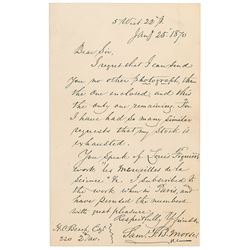 5 West 22d St
Jany 25th 1870
Dear Sir,
I regret that I can send
you no other photograph, than
the one enclosed, and this
the only one remaining. For
I have had so many similar
requests that my stock is
exhausted.
You speak of Louis Figuier's
work "les Merveilles de la
Science" &c. I subscribed to
the work when in Paris, and
have perused the numbers
with great pleasure.
Respectfully Yr friend &c
Sam. F. B. Morse
Esqr